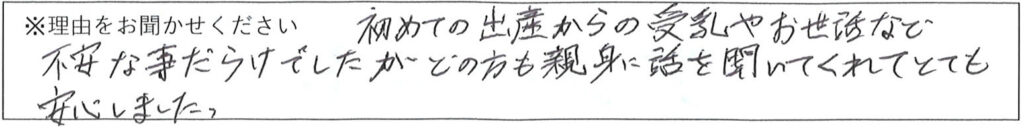 ※理由をお聞かせください 初めての出産からの受乳やお世話など
不安な事だらけでしたが どの方も親身に話を聞いてくれてとても
安心しました。